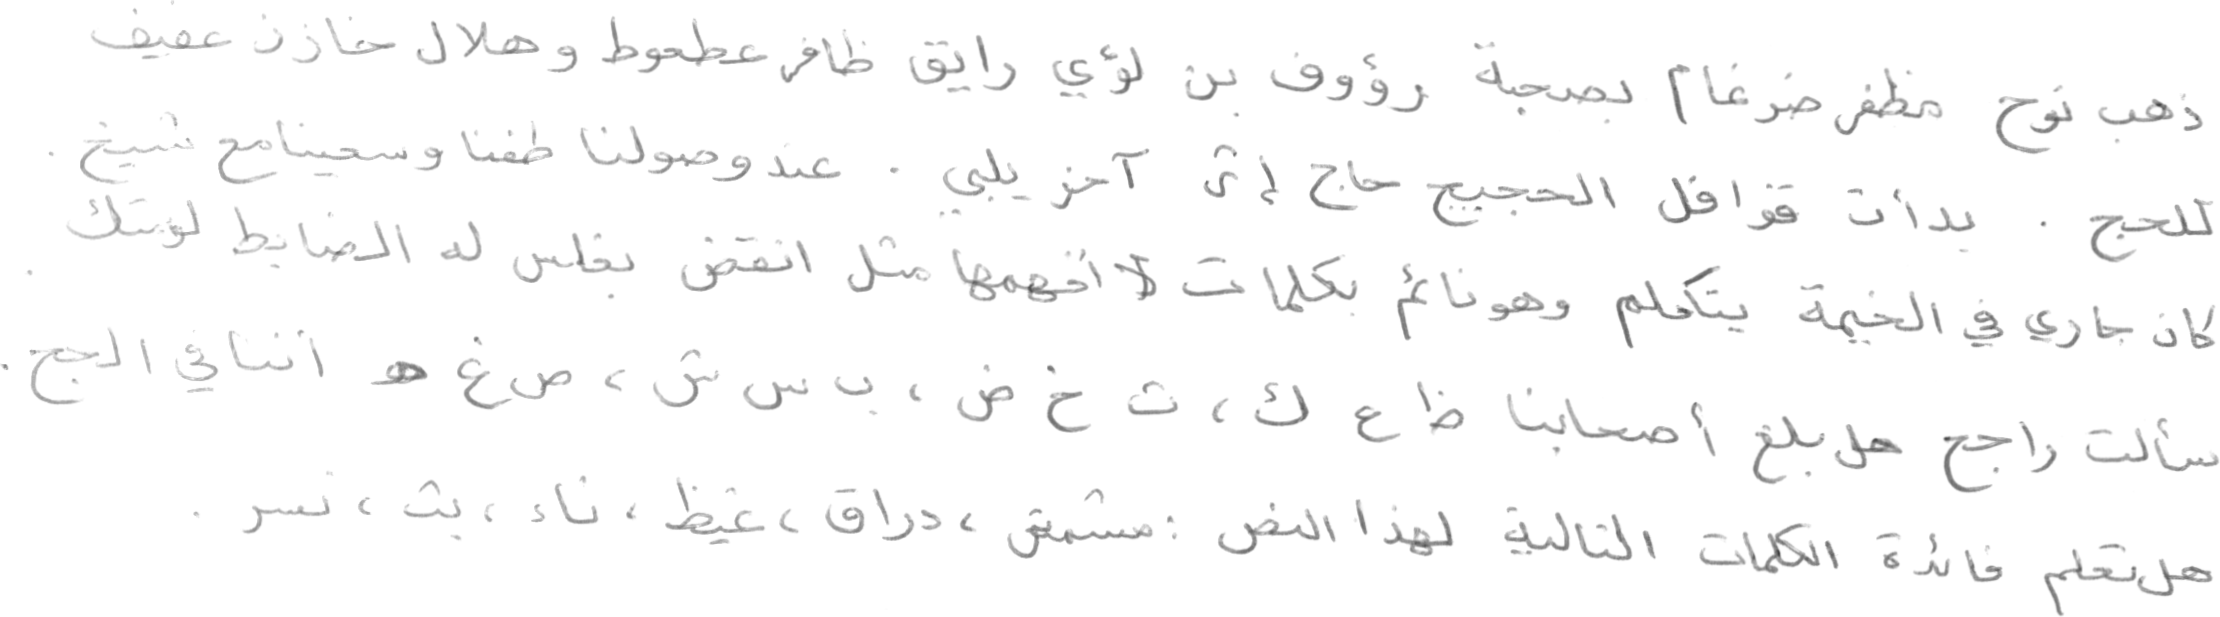 ذهب نوح مظفر ضرغام بصحبة رؤوف بن لؤي رايق ظافر عطعوط وهلال خازن عفيف
للحج . بدأت قوافل الحجيج حاج إثر آخر يلبي . عند وصولنا طفنا وسعينا مع شيخ .
كان جاري في الخيمة يتكلم وهو نائم بكلمات لا أفهمها مثل انقض بغلس له الضابط لوشك .
سألت راجح هل بلغ أصحابنا ظ ع ك ، ث خ ض ، ب س ش ، ص غ ه أننا في الحج .
هل تعلم فائدة الكلمات التالية لهذا النص : مشمش ، دراق ، غيظ ، ناء ، بث ، نسر .